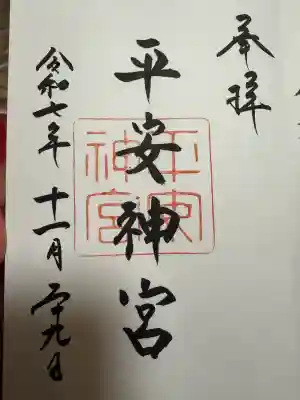 奉拝
平安神宮
平安神宮
令和七年十一月二十九日